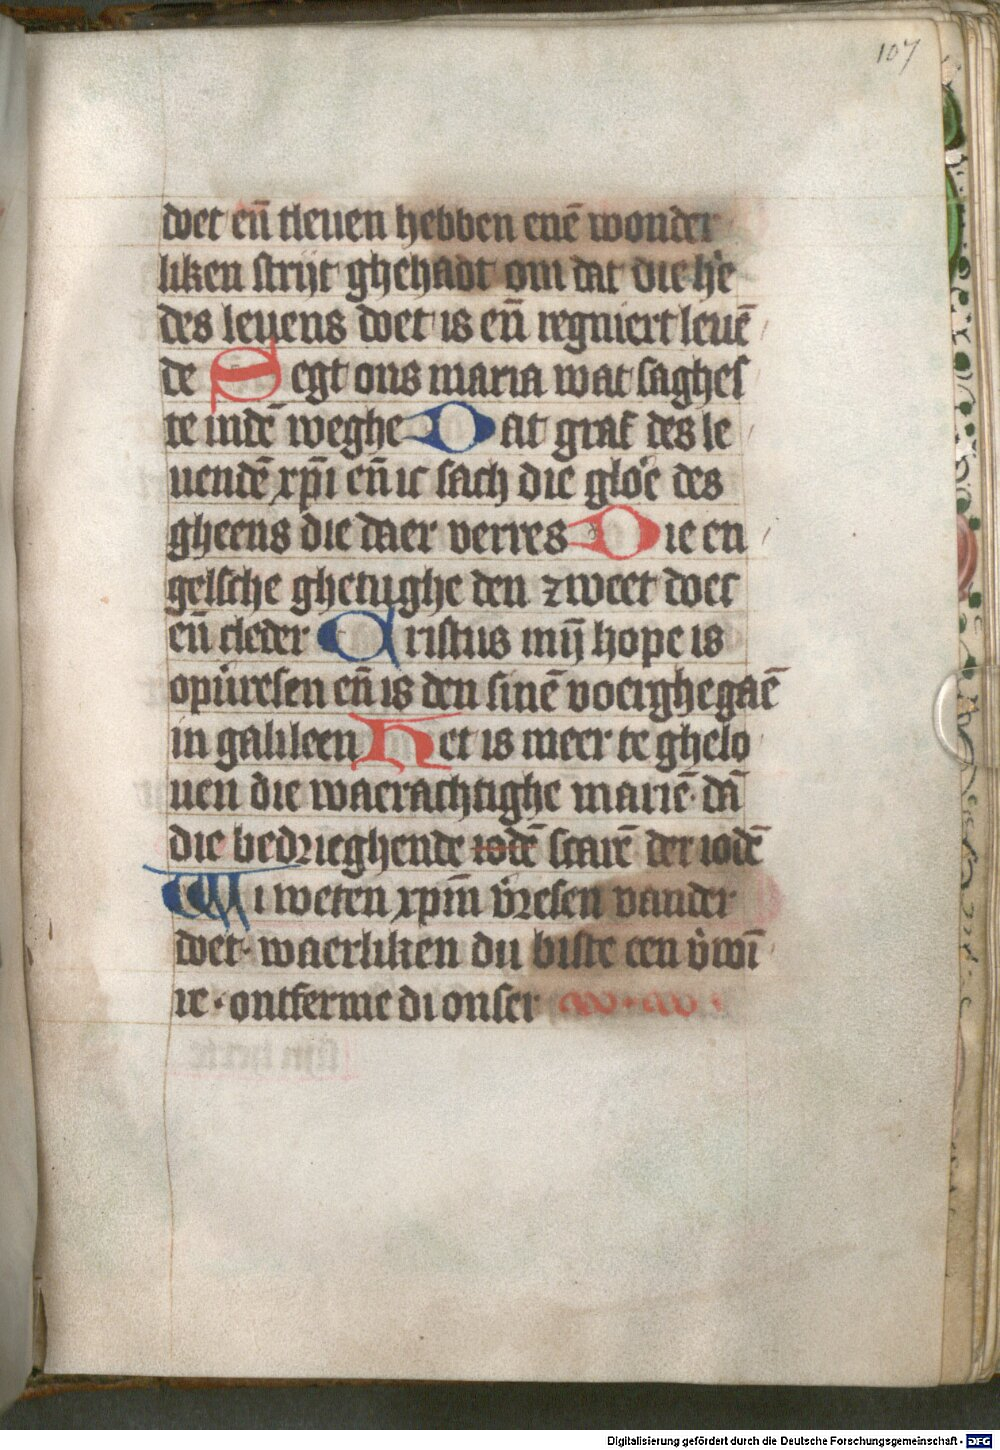 107
doet en̄ tleuen hebben enē wonder
liken strijt ghehadt om dat die h'e
des leuens doet is en̄ regniert leuē
de Segt ons maria wat saghes
te indē weghe Dat graf des le
uendē xp̄i en̄ ic sach die glo'e des
gheens die daer verres Die en
gelsche ghetughe den zweet doec
en̄ cleder Cristus mijn hope is
op v'resen en̄ is den sinē voerghegaē
in galileen Het is meer te ghelo
uen die waerachtighe mariē dā
die bedrieghende iodē scarē der iodē
Wi weten xp̄m v'resen vander
doet· waerliken du biste een v'wī
re· ontferme di onser
sijn herte
Digitalisierung gefördert durch die Deutsche Forschungsgemeinschaft - DFG